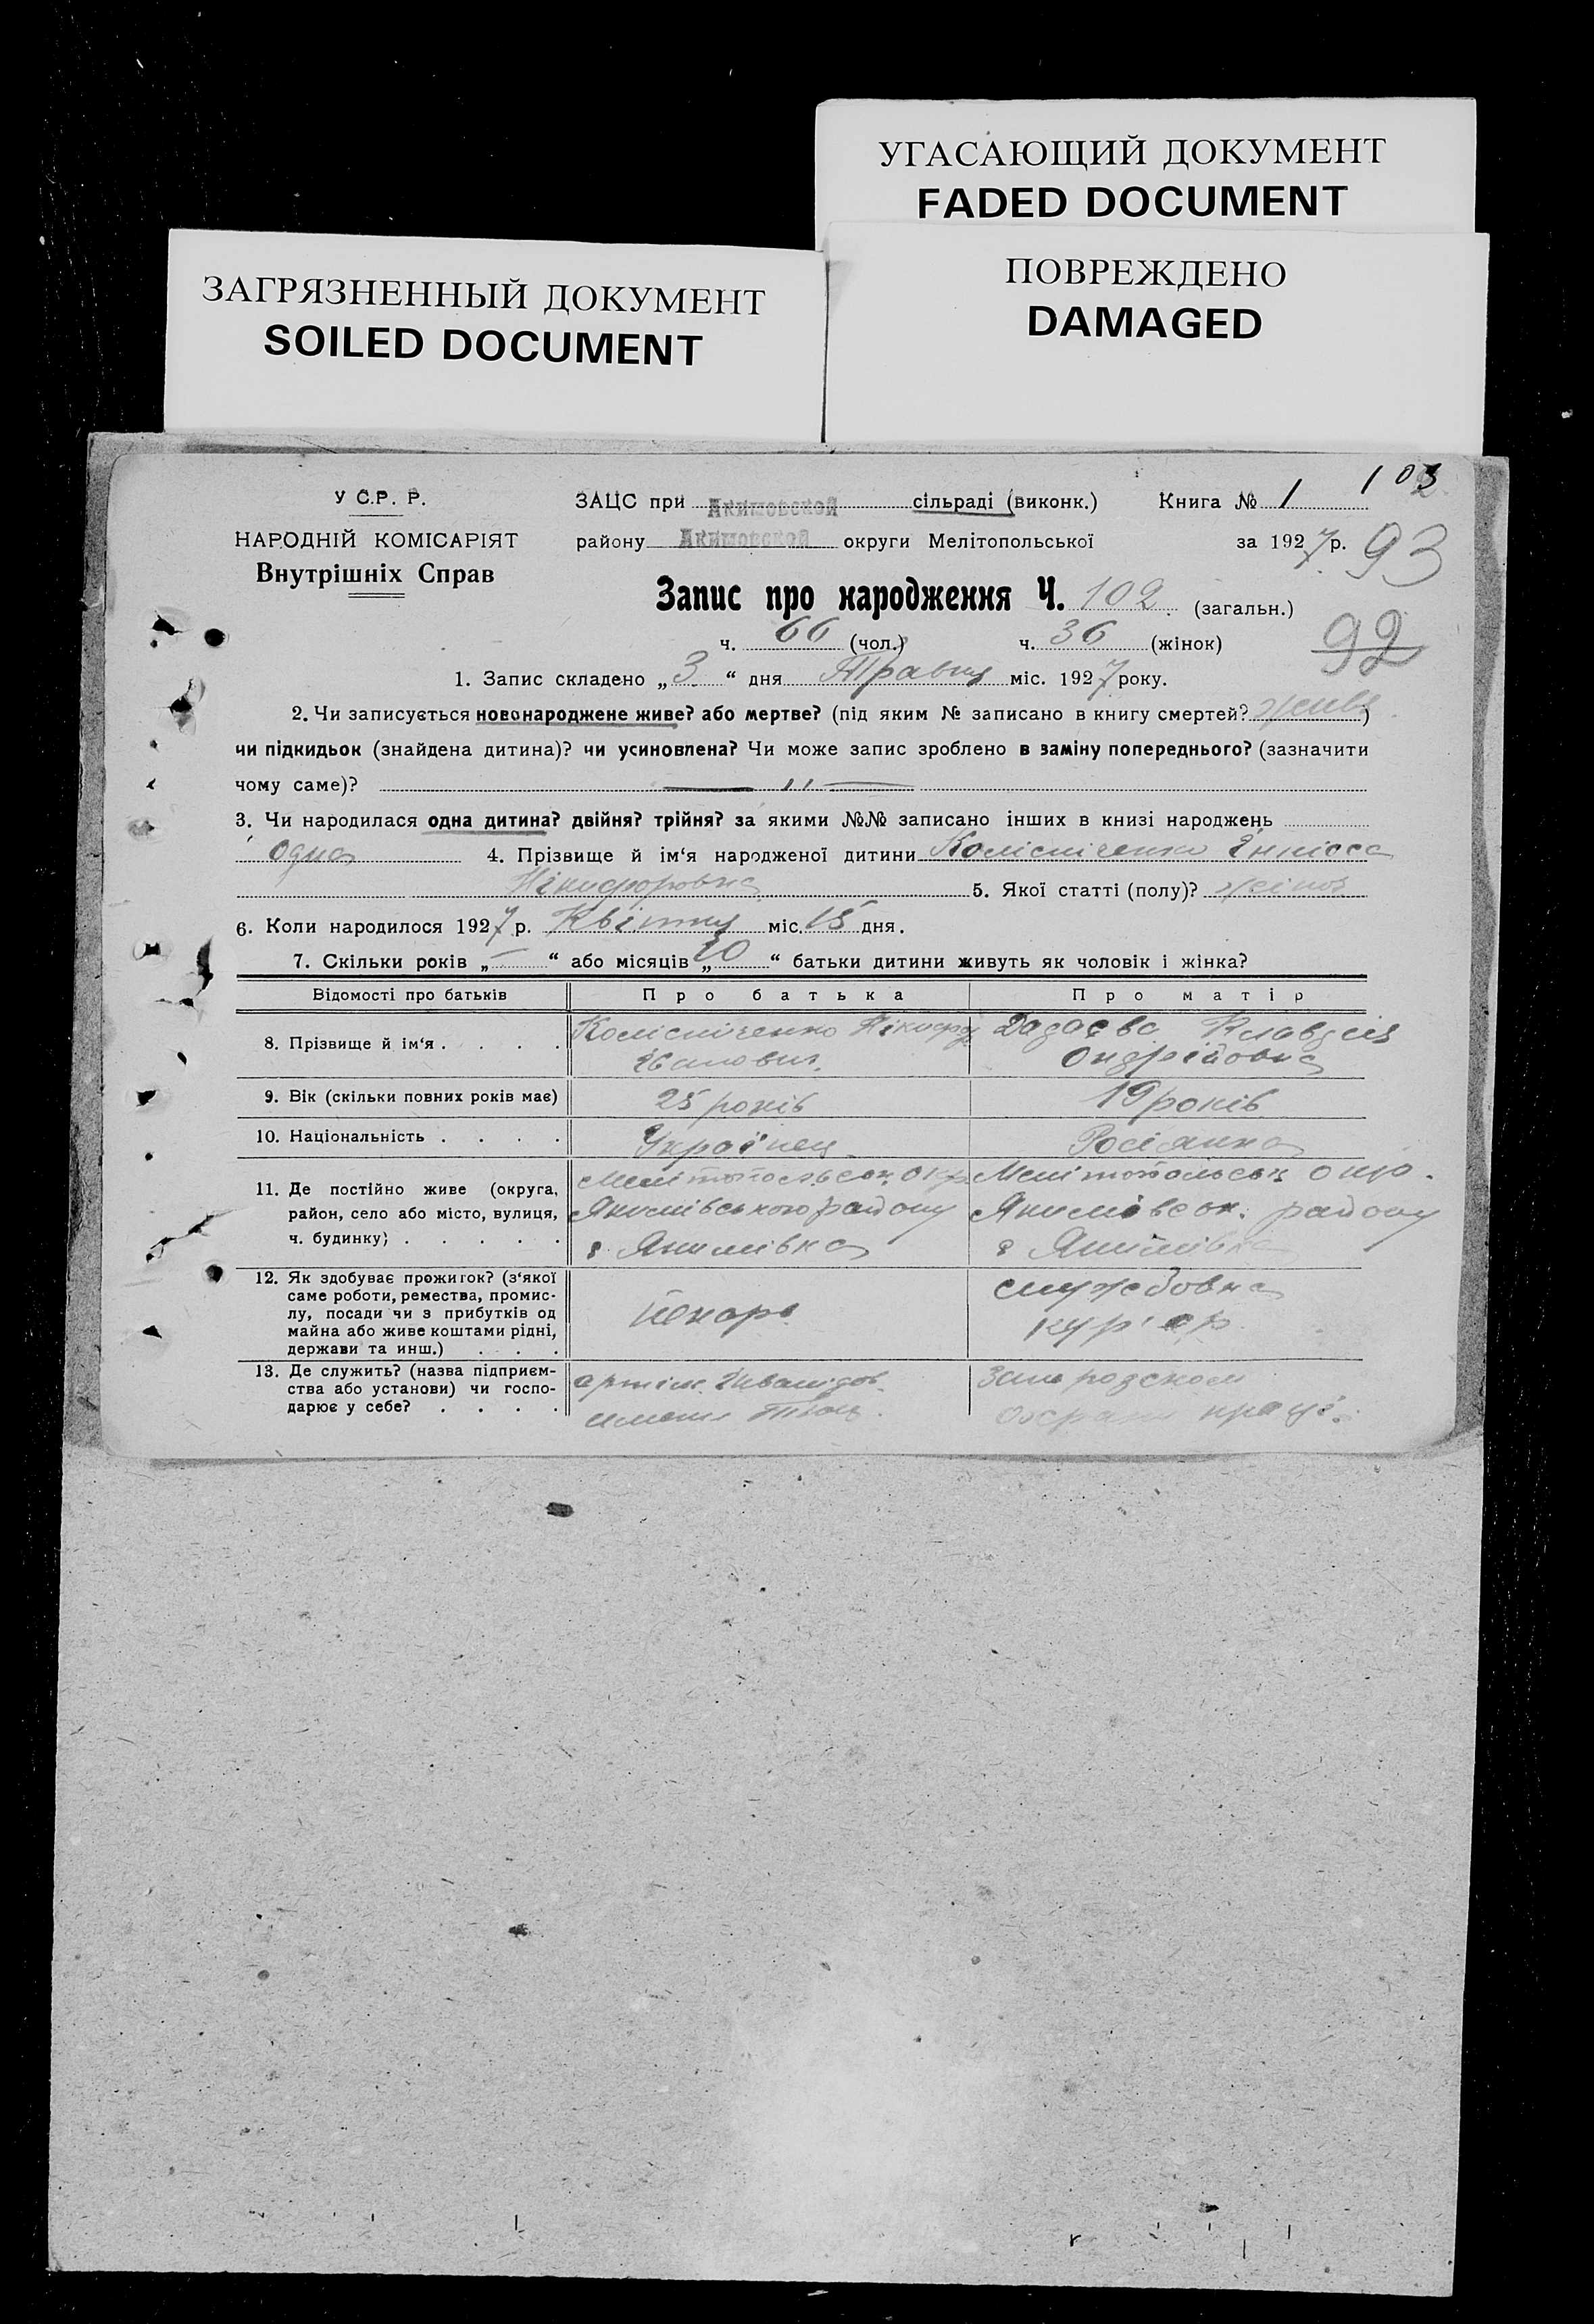 УГАСАЮЩИЙ ДОКУМЕНТ
FADED DOCUMENT
ЗАГРЯЗНЕННЫЙ ДОКУМЕНТ
SOILED DOCUMENT
ПОВРЕЖДЕНО
DAMAGED
103
У С.Р. Р.
НАРОДНІЙ КОМІСАРІЯТ
Внутрішніх Справ
ЗАЦС при Акимовской сільраді (виконк.) Книга № 1
району Акимовской округи Мелітопольської за 1927 р. 93
Запис про народження Ч. 102 (загальн.)
ч. 66 (чол.) ч. 36 (жінок) 92
1. Запис складено „3“ дня Травня міс. 1927 року.
2. Чи записується новонароджене живе? або мертве? (під яким № записано в книгу смертей? живе)
чи підкидьок (знайдена дитина)? чи усиновлена? Чи може запис зроблено в заміну попереднього? (зазначити
чому саме)? — 11 —
3. Чи народилася одна дитина? двійня? трійня? за якими №№ записано інших в книзі народжень
одна 4. Прізвище й ім‘я народженої дитини Колісніченко
Нікифоровна 5. Якої статті (полу)? жіноч
6. Коли народилося 1927 р. Квітня міс. 15 дня.
7. Скільки років „—“ або місяців „10“ батьки дитини живуть як чоловік і жінка?
Відомості про батьків Про батька Про матір
8. Прізвище й ім‘я . . . . Колісніченко Нікифор Клавдія
Іванович. Ондріївна
9. Вік (скільки повних років має) 25 років 19 років
10. Національність . . . . Українець Росіянка
11. Де постійно живе (округа, Мелітопольськ. окр. Мелітопольськ окр.
район, село або місто, вулиця, Якимівського району Якимівськ. району
ч. будинку) . . . . . с. Якимівка с. Якимівка
12. Як здобуває прожиток? (з‘якої
саме роботи, ремества, промис-
лу, посади чи з прибутків од
майна або живе коштами рідні,
держави та инш.) . . . Пекарь службовка
кур'єр
13. Де служить? (назва підприєм-
ства або установи) чи госпо-
дарює у себе? . . . . артіль Інвалідов
імені
охрани праці.